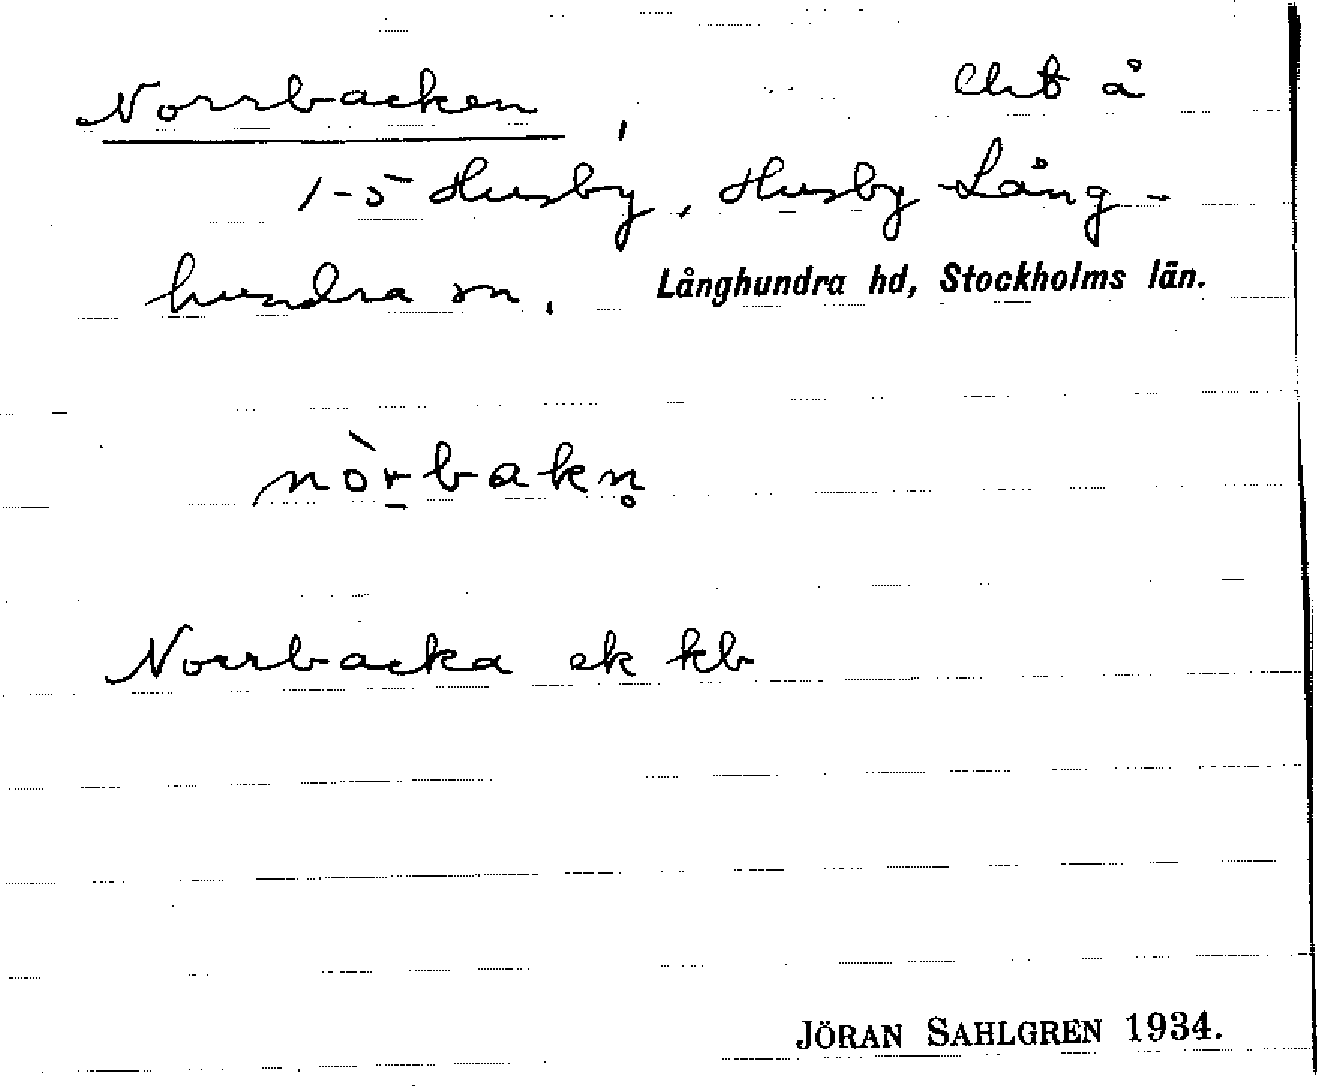 Norrbacken, lht å
1-5 Husby, Husby Lång-
hundra sn. Långhundra hd, Stockholms län.
nòrbakn̥
Norrbacka ek kb
JÖRAN SAHLGREN 1934.